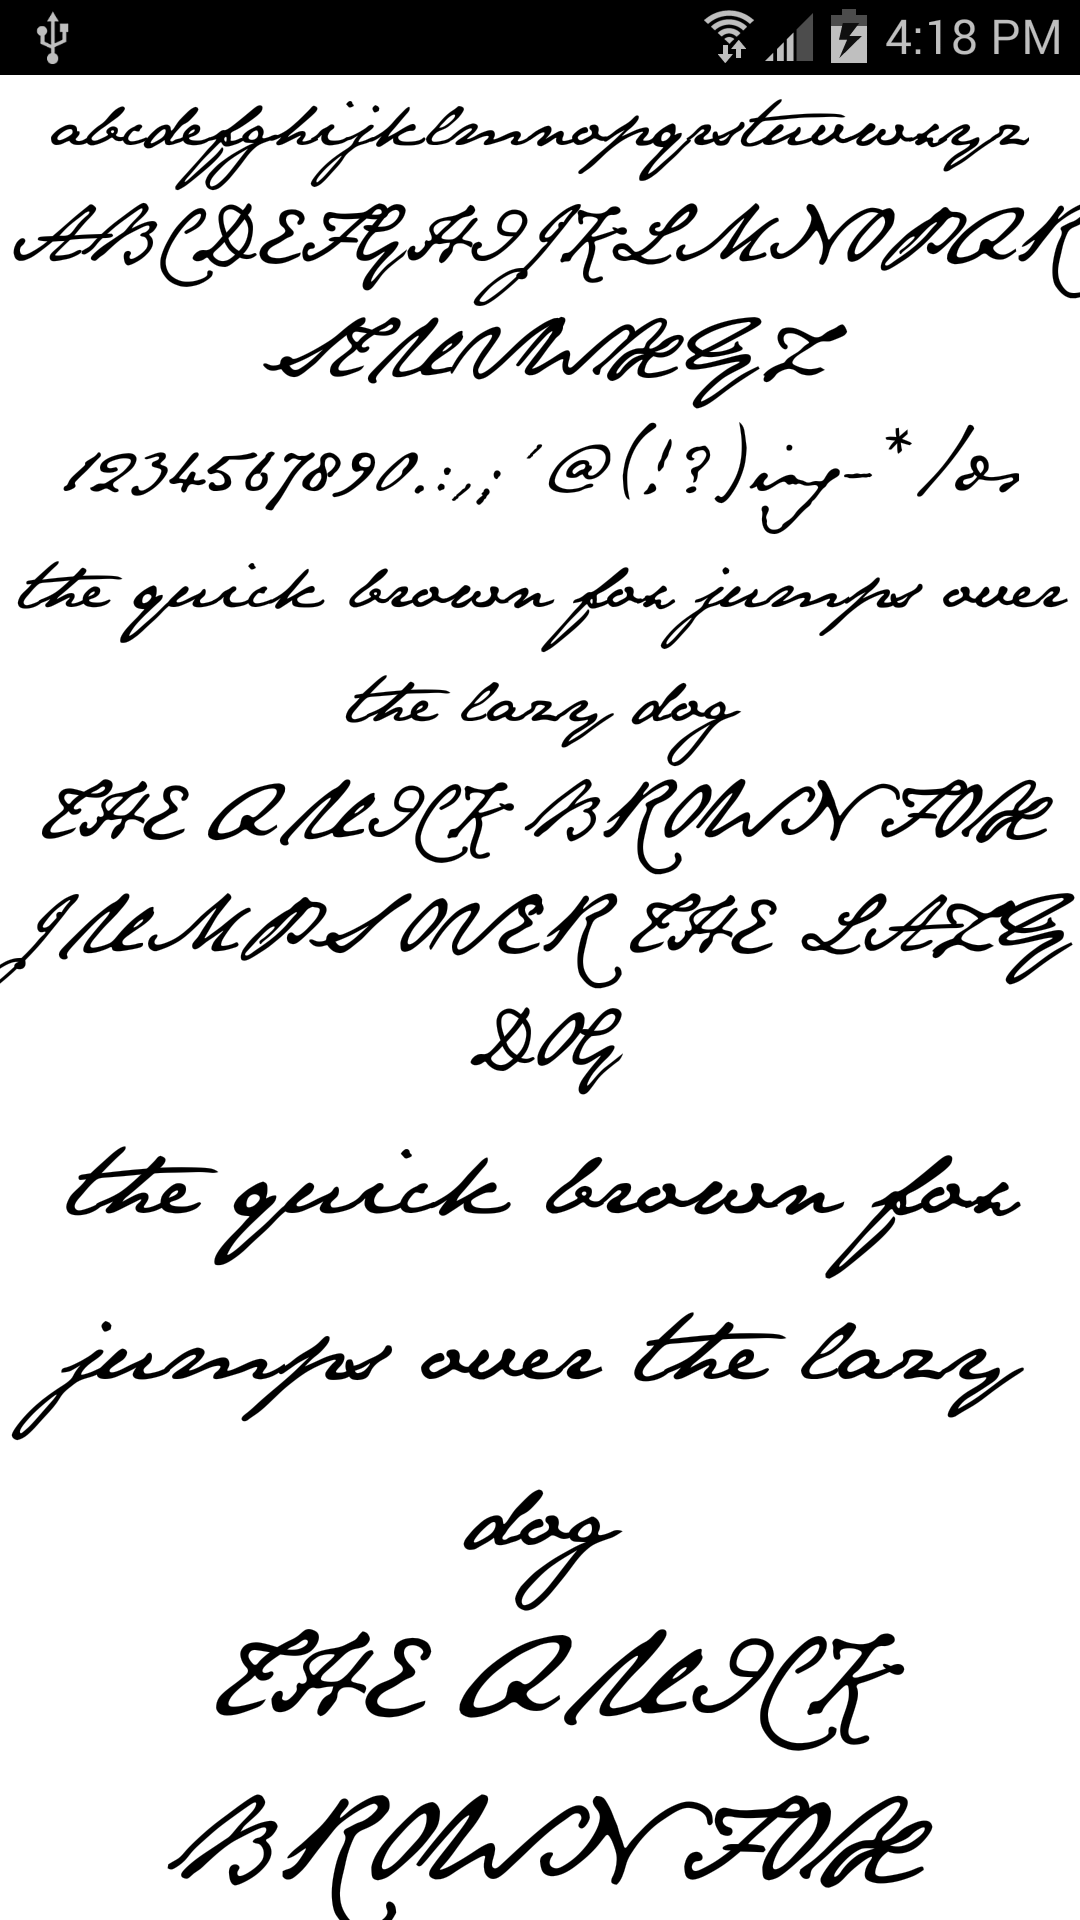 4:18 PM
abcdefghijklmnopqrstuvwxyz
ABCDEFGHIJKLMNOPQR
STUVWXYZ
1234567890.:,;'@(!?)ing-*/os
the quick brown fox jumps over
the lazy dog
THE QUICK BROWN FOX
JUMPS OVER THE LAZY
DOG
the quick brown fox
jumps over the lazy
dog
THE QUICK
BROWN FOX